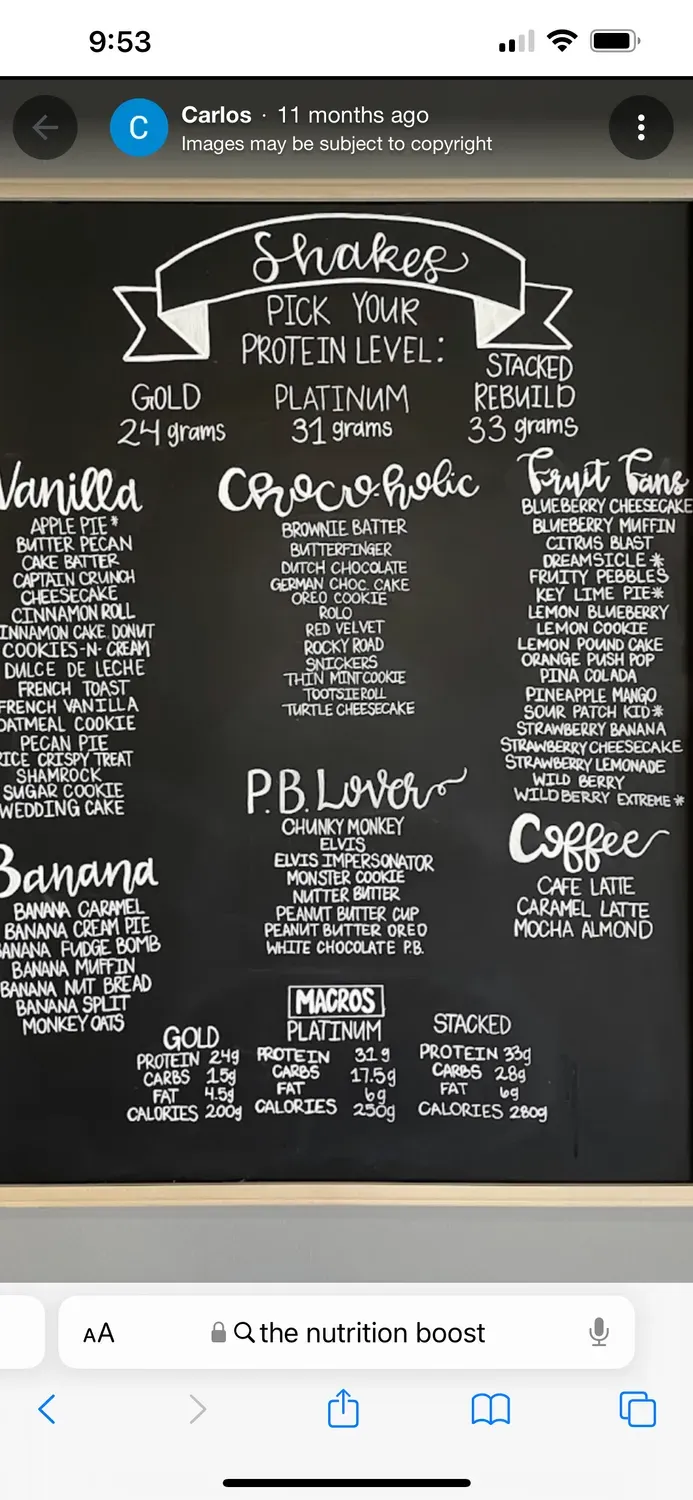 9:53
Carlos · 11 months ago
C
Images may be subject to copyright
Shakes
PICK YOUR
PROTEIN LEVEL:
GOLD
24 grams
PLATINUM
31 grams
STACKED
REBUILD
33 grams
Vanilla
APPLE PIE*
BUTTER PECAN
CAKE BATTER
CAPTAIN CRUNCH
CHEESECAKE
CINNAMON ROLL
INNAMON CAKE DONUT
COOKIES-N-CREAM
DULCE DE LECHE
FRENCH TOAST
FRENCH VANILLA
OATMEAL COOKIE
PECAN PIE
RICE CRISPY TREAT
SHAMROCK
SUGAR COOKIE
WEDDING CAKE
Banana
BANANA CARAMEL
BANANA CREAM PIE
BANANA FUDGE BOMB
BANANA MUFFIN
BANANA NUT BREAD
BANANA SPLIT
MONKEY OATS
Choco-holic
BROWNIE BATTER
BUTTERFINGER
DUTCH CHOCOLATE
GERMAN CHOC. CAKE
OREO COOKIE
ROLO
RED VELVET
ROCKY ROAD
SNICKERS
THIN MINT COOKIE
TOOTSIEROLL
TURTLE CHEESECAKE
P.B. Lover
CHUNKY MONKEY
ELVIS
ELVIS IMPERSONATOR
MONSTER COOKIE
NUTTER BUTTER
PEANUT BUTTER CUP
PEANUT BUTTER OREO
WHITE CHOCOLATE P.B.
Fruit Fans
BLUEBERRY CHEESECAKE
BLUEBERRY MUFFIN
CITRUS BLAST
DREAMSICLE*
FRUITY PEBBLES
KEY LIME PIE*
LEMON BLUEBERRY
LEMON COOKIE
LEMON POUND CAKE
ORANGE PUSH POP
PINA COLADA
PINEAPPLE MANGO
SOUR PATCH KID*
STRAWBERRY BANANA
STRAWBERRY CHEESECAKE
STRAWBERRY LEMONADE
WILD BERRY
WILDBERRY EXTREME*
Coffee
CAFE LATTE
CARAMEL LATTE
MOCHA ALMOND
MACROS
GOLD
PROTEIN 24g
CARBS 15g
FAT 4.5g
CALORIES 200g
PLATINUM
PROTEIN 31g
CARBS 17.5g
FAT 6g
CALORIES 250g
STACKED
PROTEIN 33g
CARBS 28g
FAT 6g
CALORIES 280g
AA
the nutrition boost